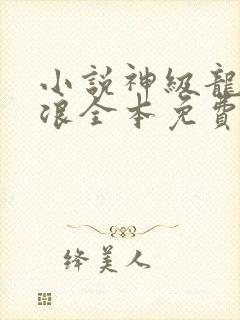 小説神級龍
浪全本免費
绛美人